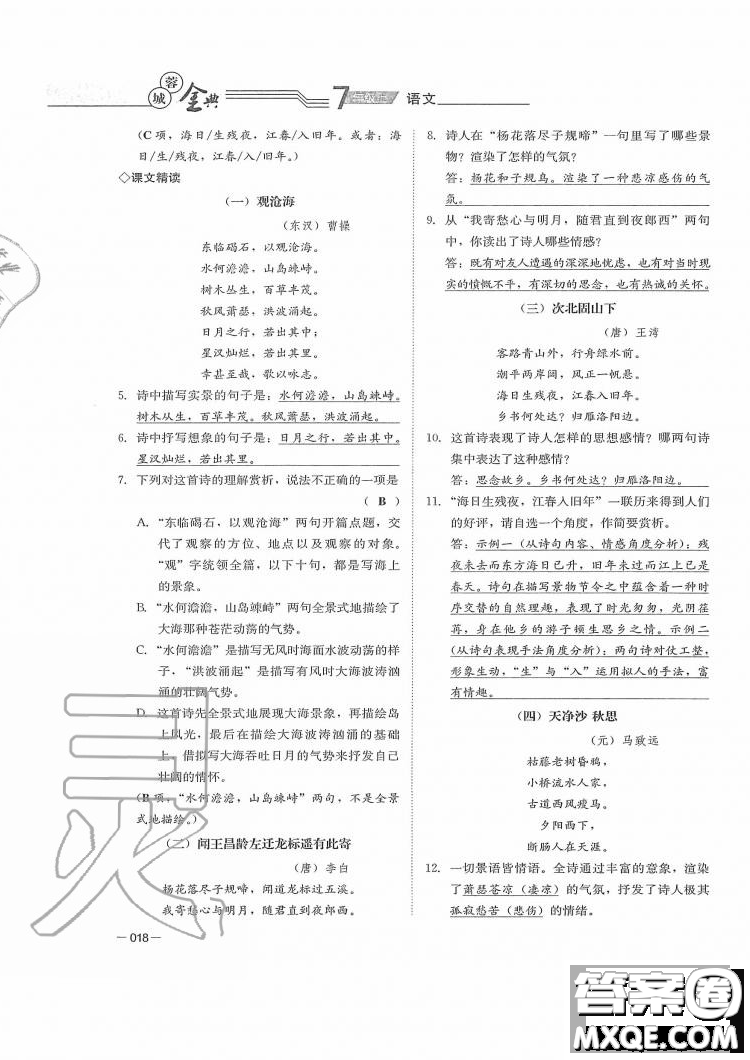 蓉城金典 7 年级上 语文
(C 项，海日/生残夜，江春/入旧年。或者：海
日/生/残夜，江春/入/旧年。)
◇课文精读
(一) 观沧海
(东汉) 曹操
东临碣石，以观沧海。
水何澹澹，山岛竦峙。
树木丛生，百草丰茂。
秋风萧瑟，洪波涌起。
日月之行，若出其中；
星汉灿烂，若出其里。
幸甚至哉，歌以咏志。
5. 诗中描写实景的句子是：水何澹澹，山岛竦峙。
树木丛生，百草丰茂。秋风萧瑟，洪波涌起。
6. 诗中抒写想象的句子是：日月之行，若出其中。
星汉灿烂，若出其里。
7. 下列对这首诗的理解赏析，说法不正确的一项是
( B )
A. “东临碣石，以观沧海”两句开篇点题，交
代了观察的方位、地点以及观察的对象。
“观”字统领全篇，以下十句，都是写海上
的景象。
B. “水何澹澹，山岛竦峙”两句全景式地描绘了
大海那种苍茫动荡的气势。
C. “水何澹澹”是描写无风时海面水波动荡的样
子，“洪波涌起”是描写有风时大海波涛汹
涌的壮阔气势。
D. 这首诗先全景式地展现大海景象，再描绘岛
上风光，最后在描绘大海波涛汹涌的基础
上，借拟写大海吞吐日月的气势来抒发自己
壮阔的情怀。
(B 项，“水何澹澹，山岛竦峙”两句，不是全景
式地描绘。)
(二) 闻王昌龄左迁龙标遥有此寄
(唐) 李白
杨花落尽子规啼，闻道龙标过五溪。
我寄愁心与明月，随君直到夜郎西。
— 018 —
8. 诗人在“杨花落尽子规啼”一句里写了哪些景
物？渲染了怎样的气氛？
答：杨花和子规鸟。渲染了一种悲凉感伤的气
氛。
9. 从“我寄愁心与明月，随君直到夜郎西”两句
中，你读出了诗人哪些情感？
答：既有对友人遭遇的深深地忧虑，也有对当时现
实的愤慨不平，有深切的思念，也有热诚的关怀。
(三) 次北固山下
(唐) 王湾
客路青山外，行舟绿水前。
潮平两岸阔，风正一帆悬。
海日生残夜，江春入旧年。
乡书何处达？归雁洛阳边。
10. 这首诗表现了诗人怎样的思想感情？哪两句诗
集中表达了这种感情？
答：思念故乡。乡书何处达？归雁洛阳边。
11. “海日生残夜，江春入旧年”一联历来得到人们
的好评，请自选一个角度，作简要赏析。
答：示例一（从诗句内容、情感角度分析）：残
夜未去而东方海日已升，旧年未过而江上已是
春天。诗句在描写景物节令之中蕴含着一种时
序交替的自然理趣，表现了时光匆匆，光阴荏
苒，身在他乡的游子顿生思乡之情。示例二
（从诗句表现手法角度分析）：两句诗对仗工整，
形象生动，“生”与“入”运用拟人的手法，富
有情趣。
(四) 天净沙 秋思
(元) 马致远
枯藤老树昏鸦，
小桥流水人家，
古道西风瘦马。
夕阳西下，
断肠人在天涯。
12. 一切景语皆情语。全诗通过丰富的意象，渲染
了萧瑟苍凉（凄凉）的气氛，抒发了诗人极其
孤寂愁苦（悲伤）的情绪。
答案圈
MXQE.COM